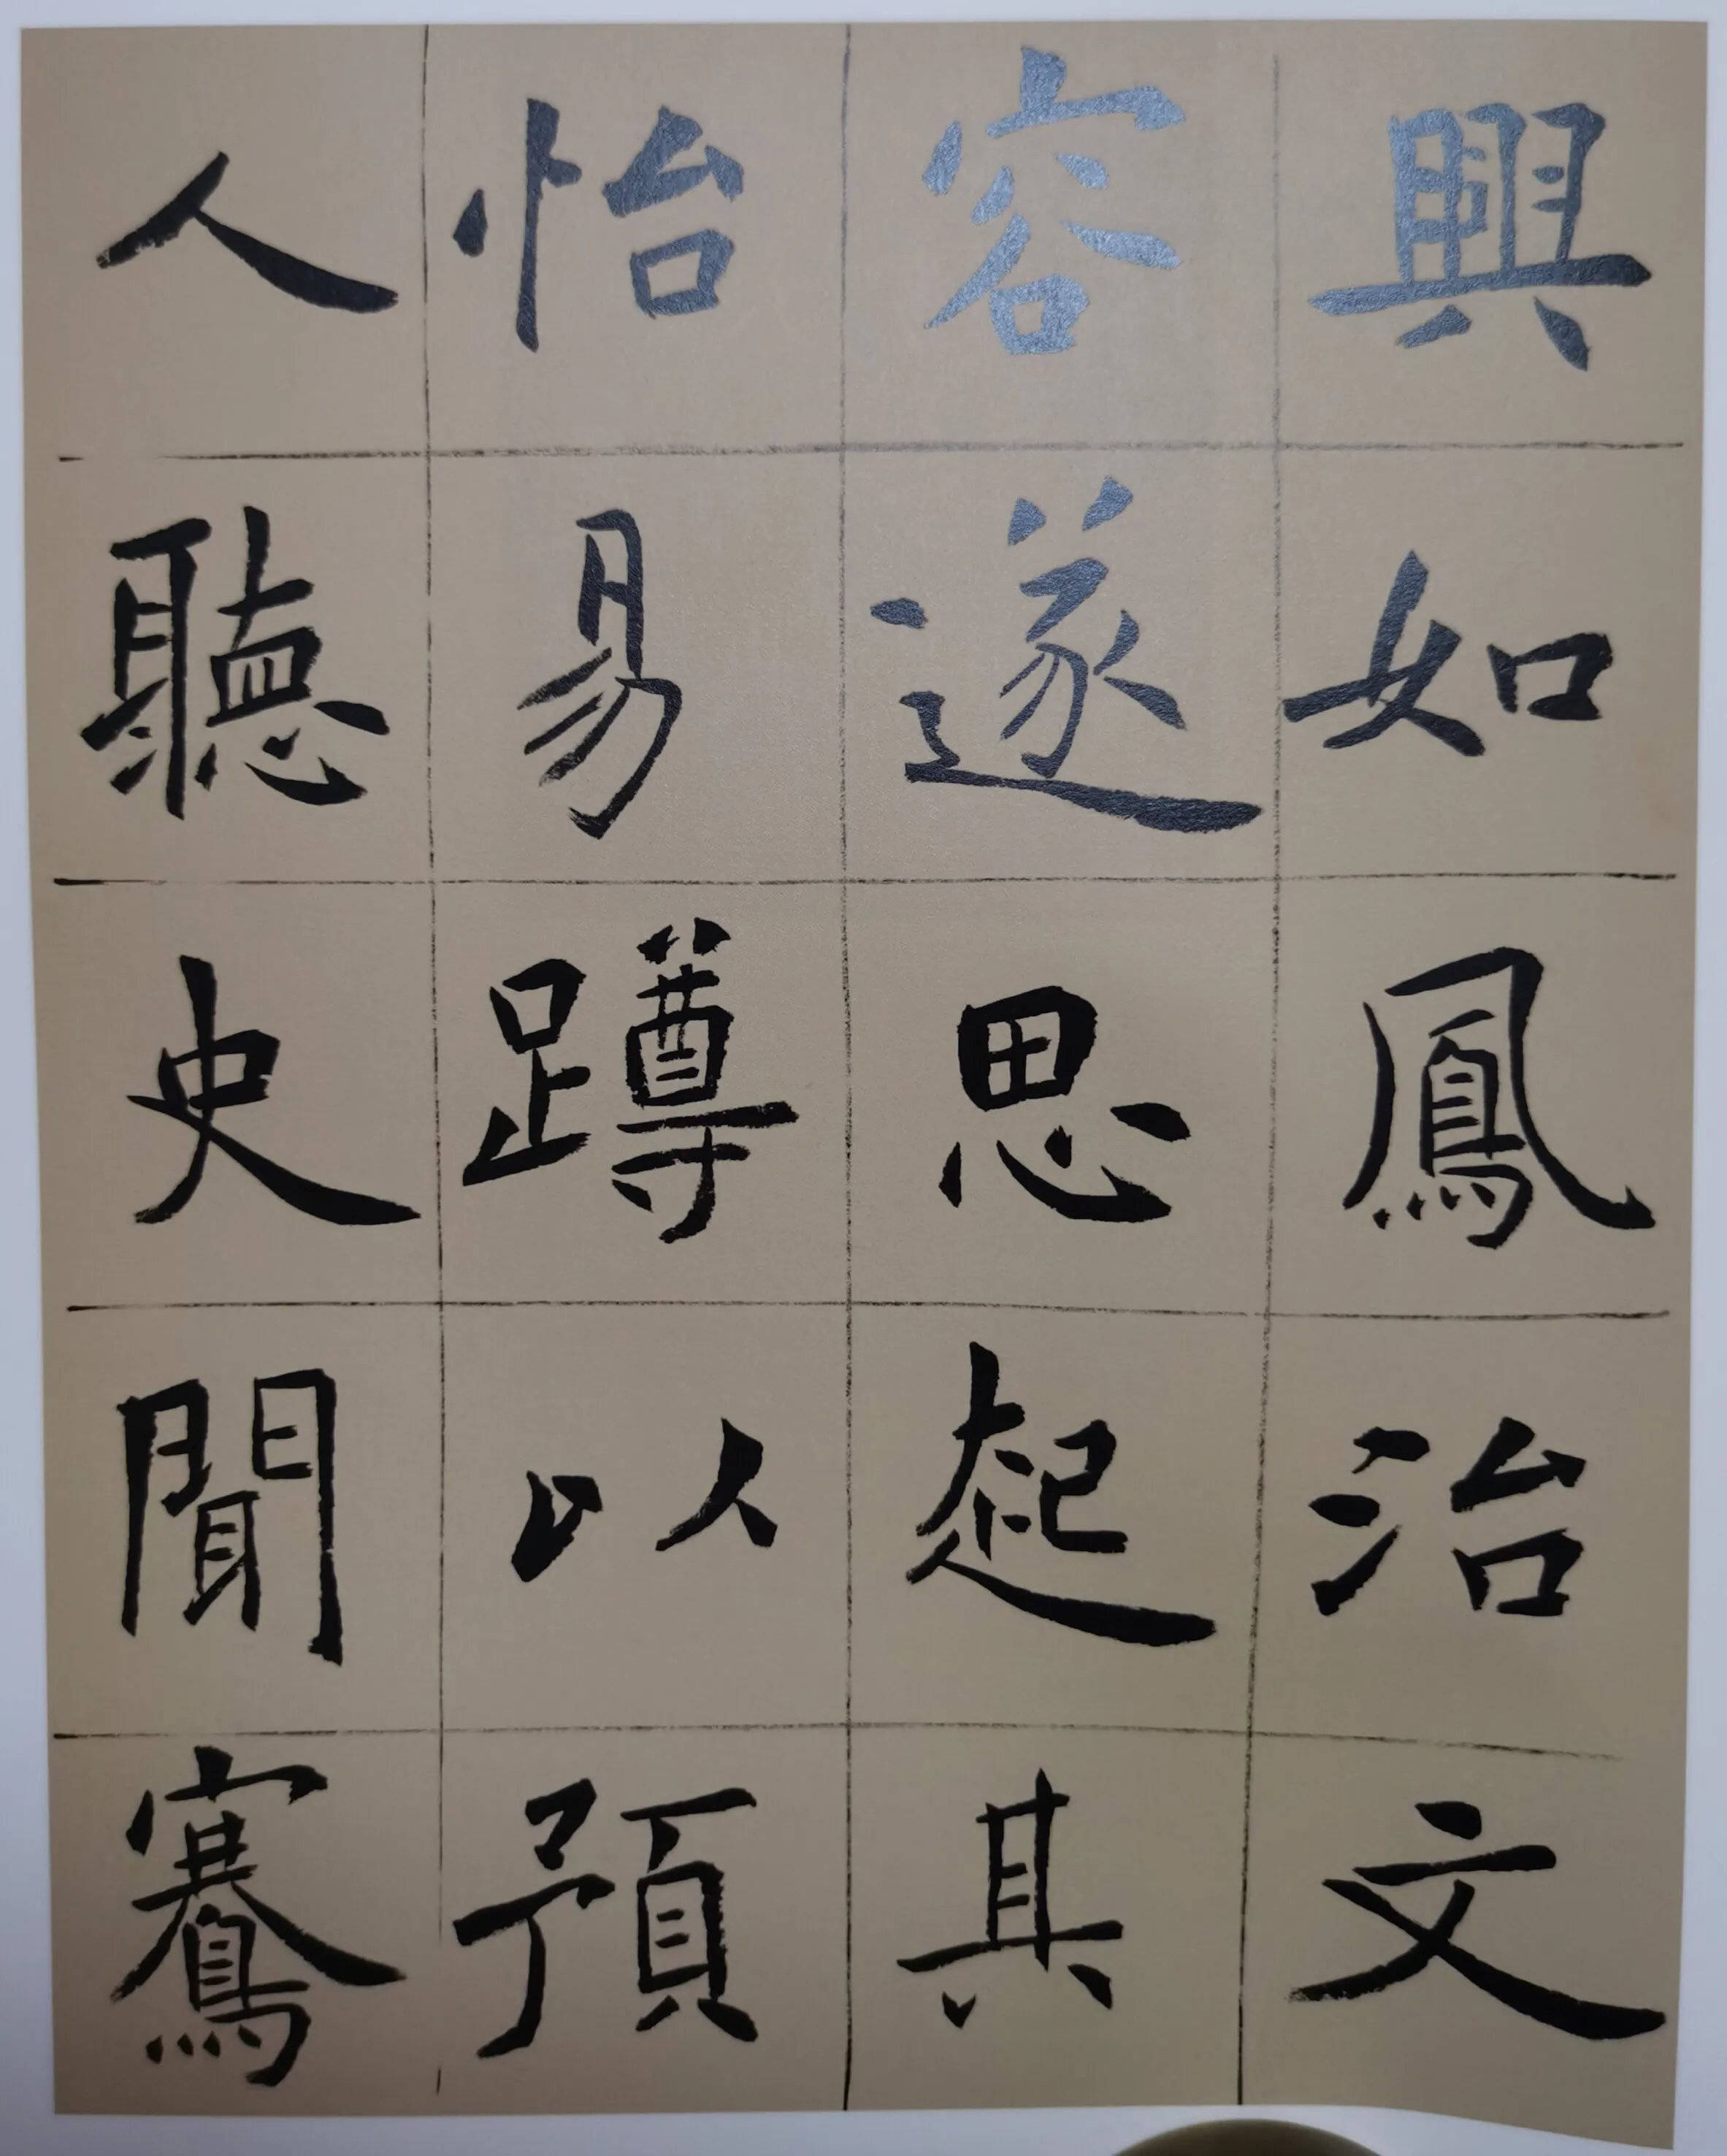 興如鳳治文
容遂思起其
怡易蹲以預
人聽史聞鶱